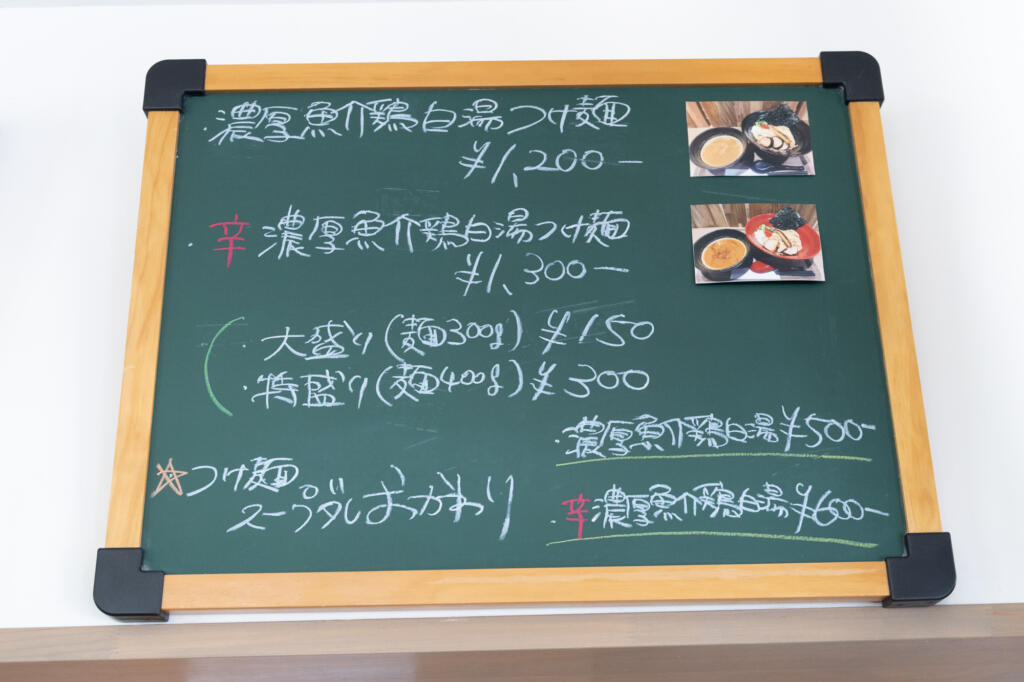 ・濃厚魚介鶏白湯つけ麺
¥1,200ー
・辛 濃厚魚介鶏白湯つけ麺
¥1,300ー
大盛り(麺300g) ¥150
・特盛り(麺400g) ¥300
☆つけ麺
スープダレおかわり
・濃厚魚介鶏白湯¥500ー
・辛濃厚魚介鶏白湯¥600ー